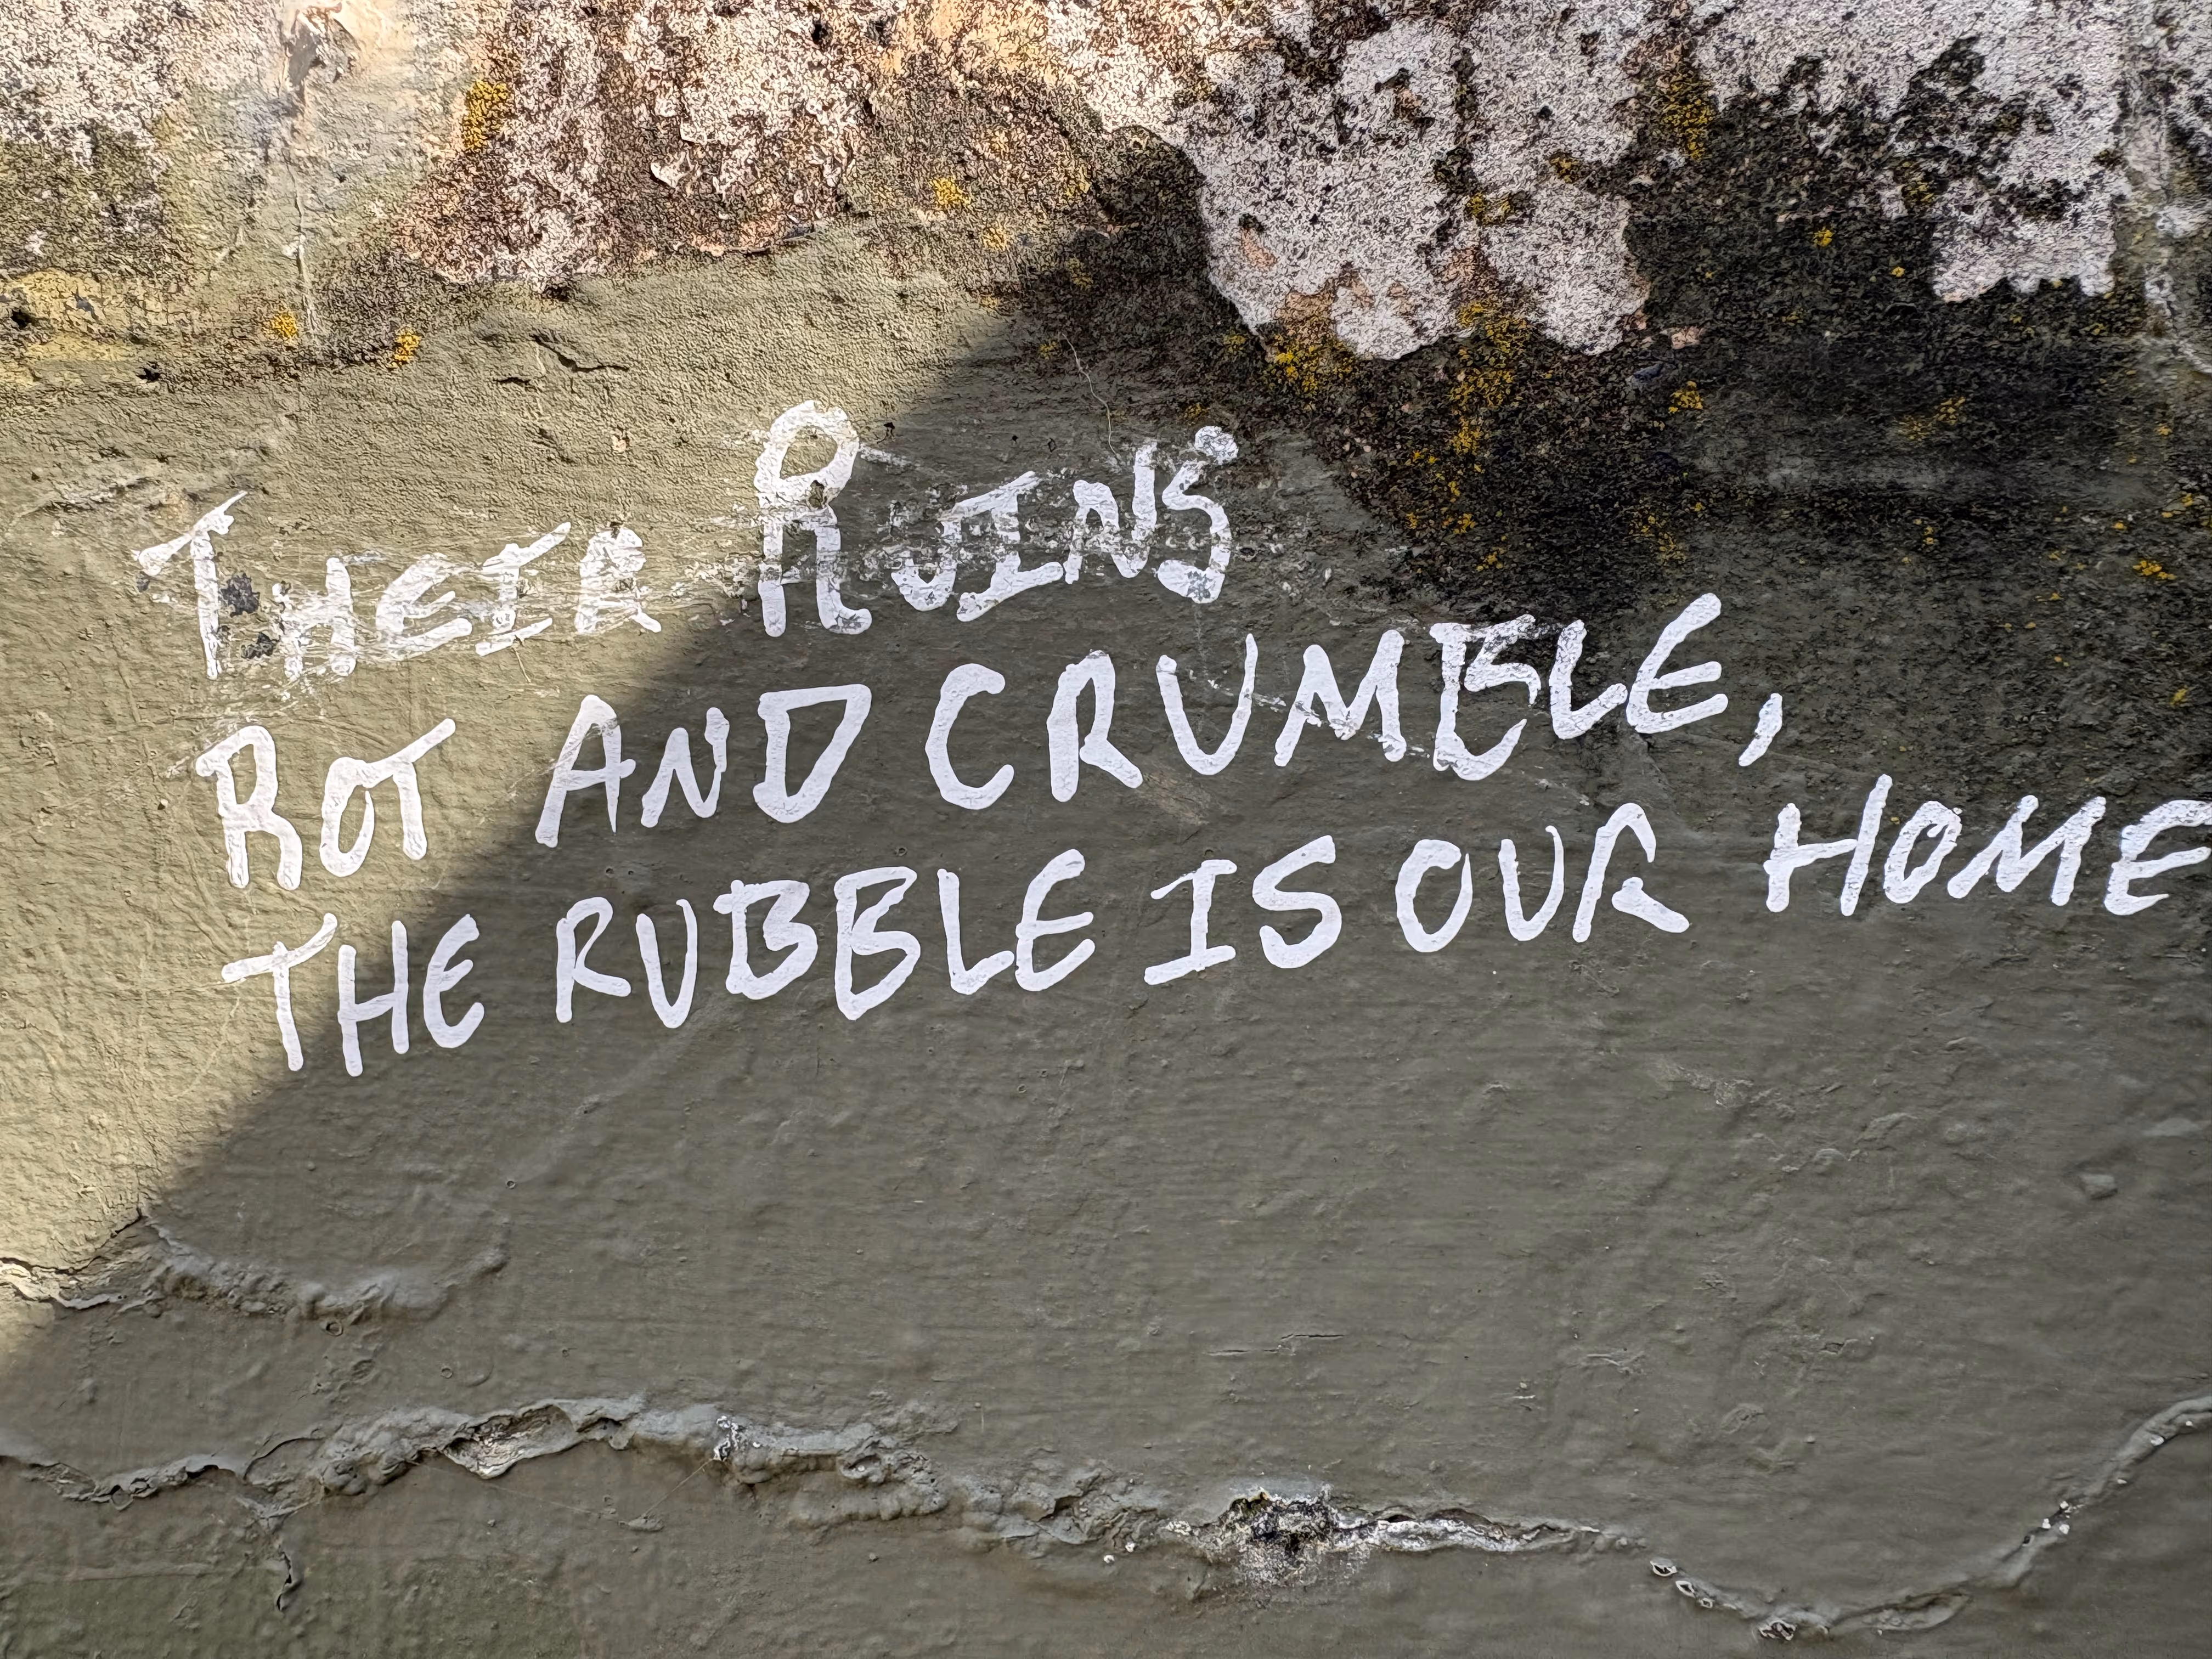 THEIR RUINS
ROT AND CRUMBLE,
THE RUBBLE IS OUR HOME